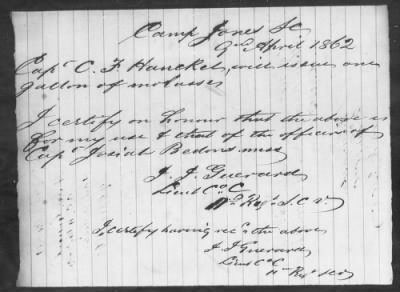 Camp Jones SC
9th April 1862
Capt C. F. Hanckel, will issue one
gallon of molasses
I certify on honour that the above is
for my use & that of the officers of
Capt Josiah Bedons mess
J. J. Guerard
Lieut Co. C
11th Regt S. C. V.
I certify having recd the above
J J Guerard
Lieut Co C
11th Regt SCV